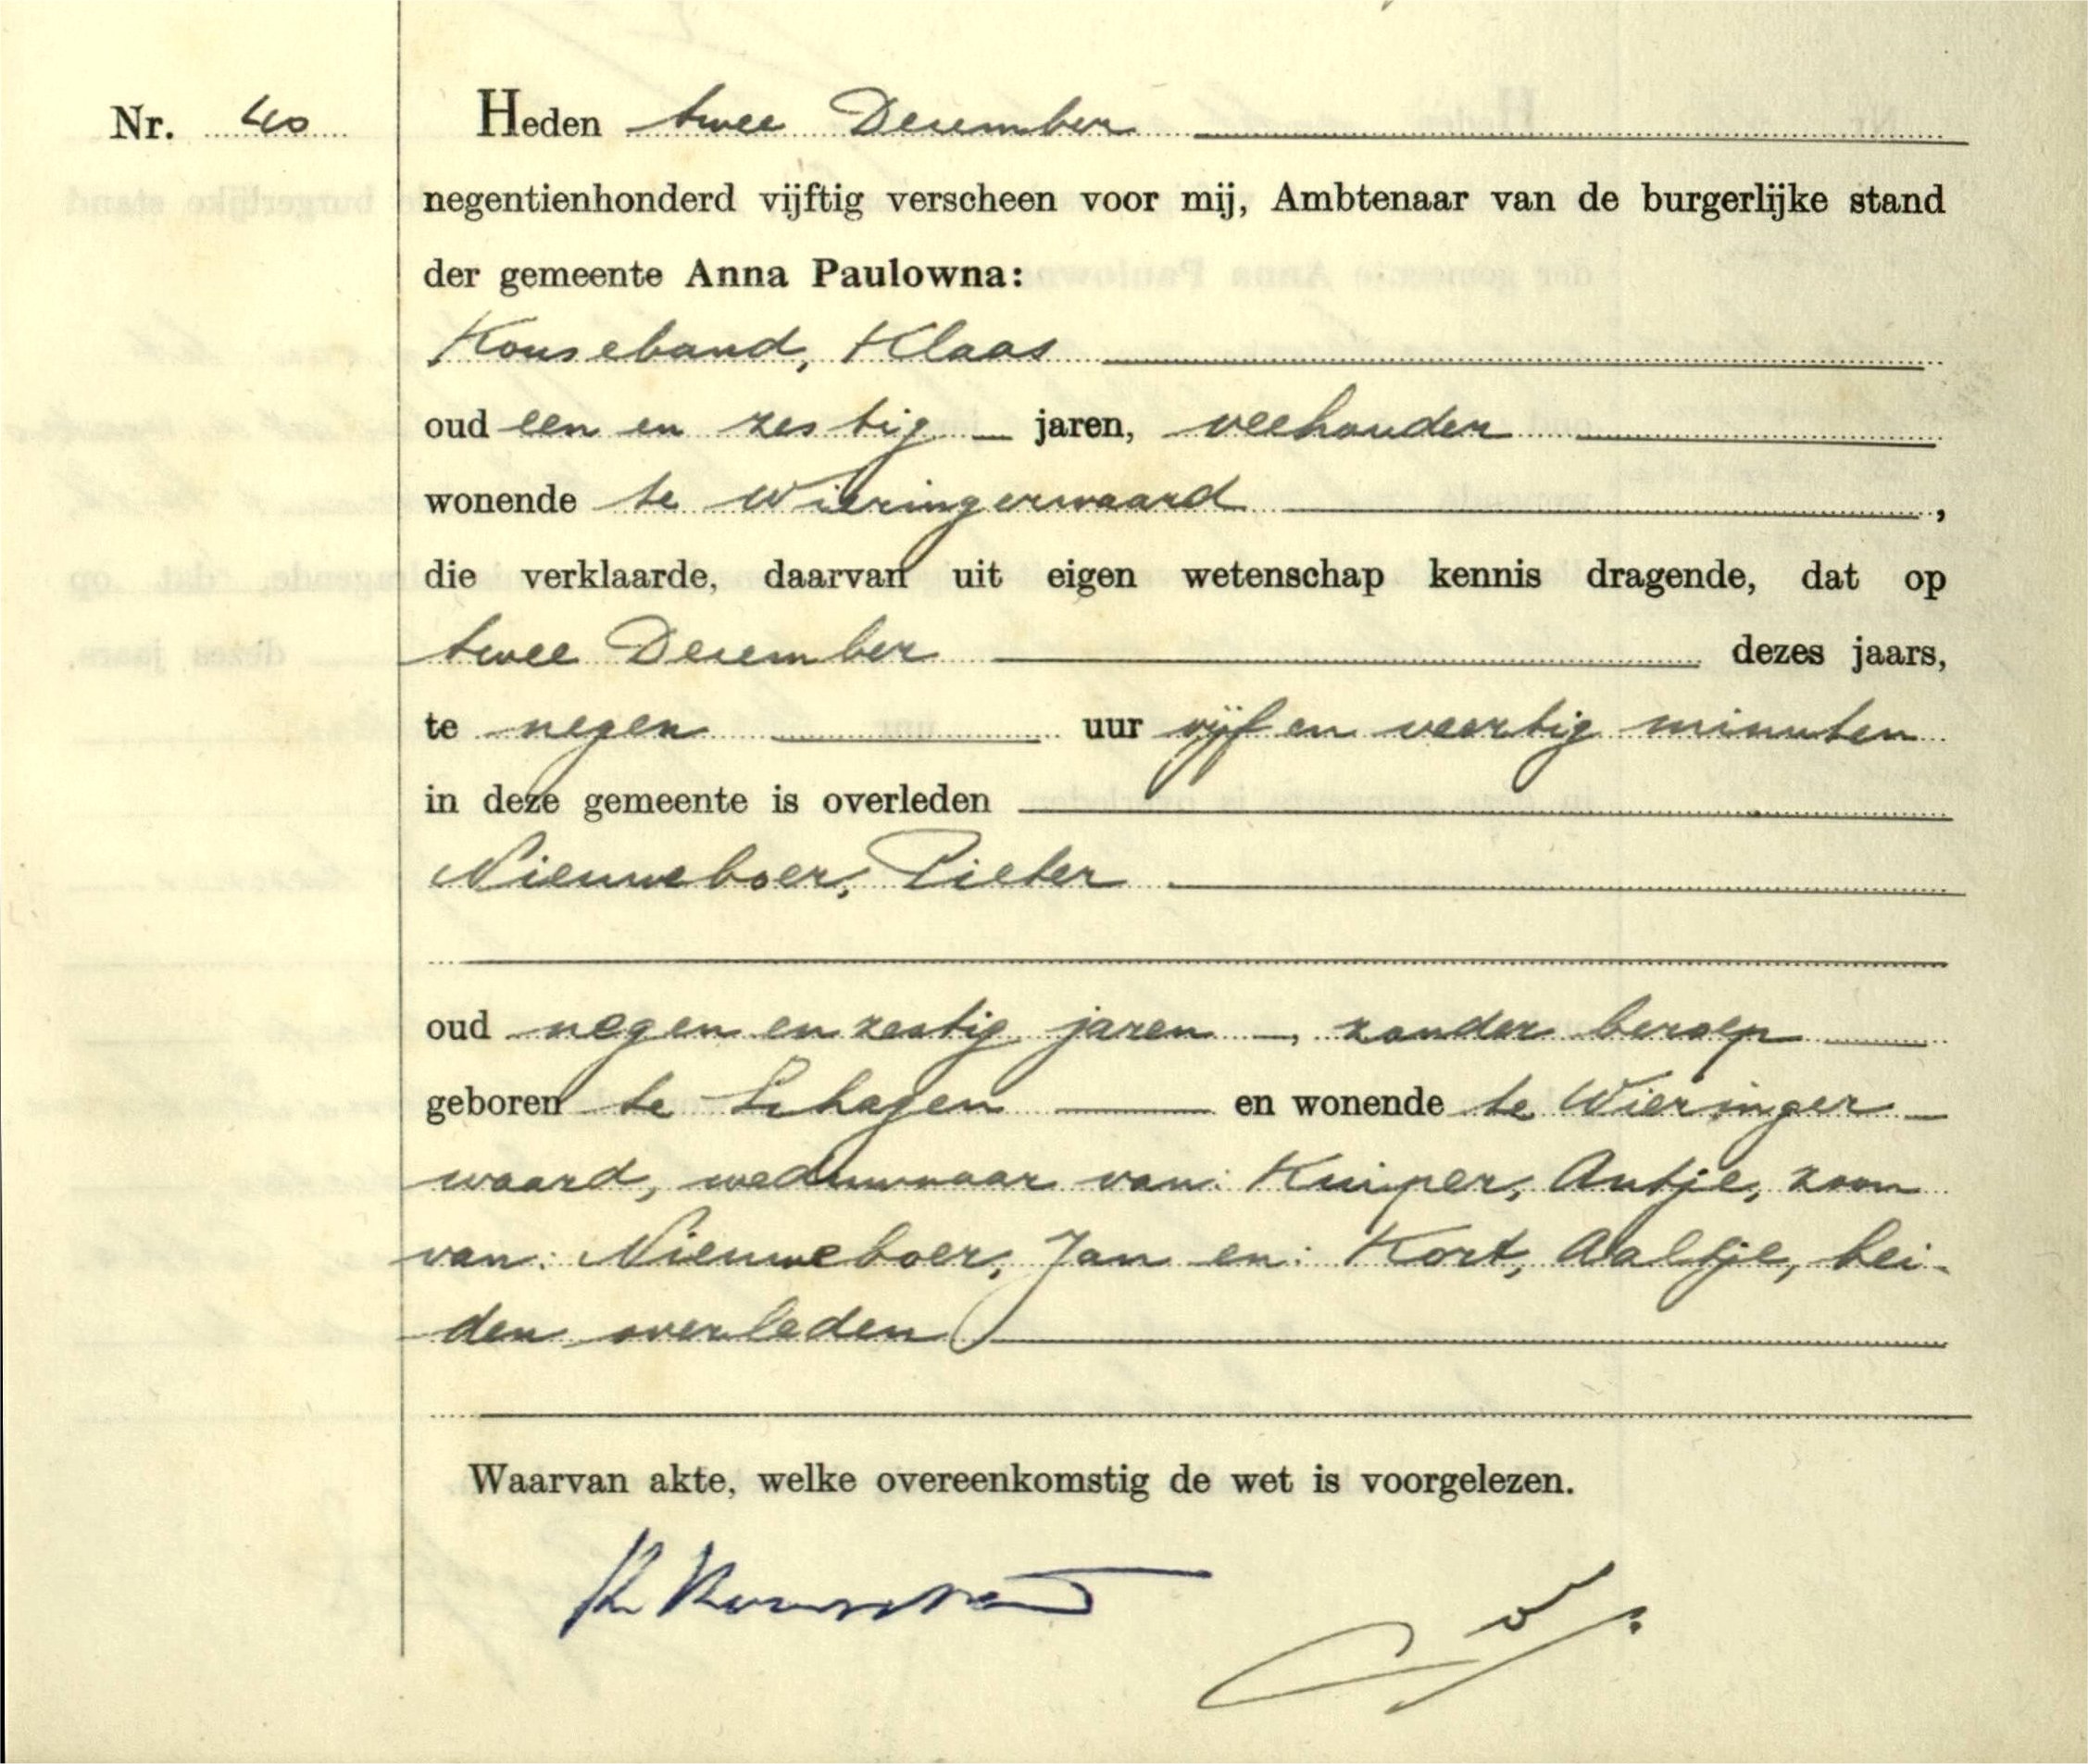 Nr. 40
Heden twee December
negentienhonderd vijftig verscheen voor mij, Ambtenaar van de burgerlijke stand
der gemeente Anna Paulowna:
Kouseband, Klaas
oud een en zestig jaren, veehouder
wonende te Wieringerwaard,
die verklaarde, daarvan uit eigen wetenschap kennis dragende, dat op
twee December dezes jaars,
te negen uur vijf en veertig minuten
in deze gemeente is overleden
Nieuweboer, Pieter
oud negen en zestig jaren, zonder beroep
geboren te Schagen en wonende te Wieringer
waard, weduwnaar van: Kuiper, Antje, zoon
van: Nieuweboer, Jan en: Kort, Aaltje, bei-
den overleden
Waarvan akte, welke overeenkomstig de wet is voorgelezen.